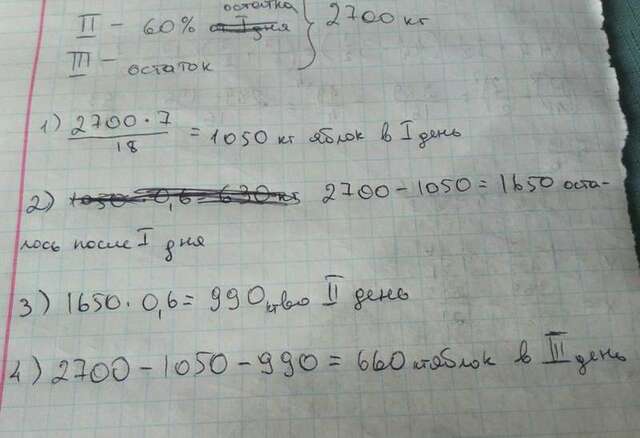 остатка
II – 60% I дня } 2700 кг
III – остаток
1) 2700 · 7 / 18 = 1050 кг яблок в I день
2) 1050 · 0,6 = 630 кг 2700 – 1050 = 1650 оста-
лось после I дня
3) 1650 · 0,6 = 990 кг во II день
4) 2700 – 1050 – 990 = 660 кг яблок в III день